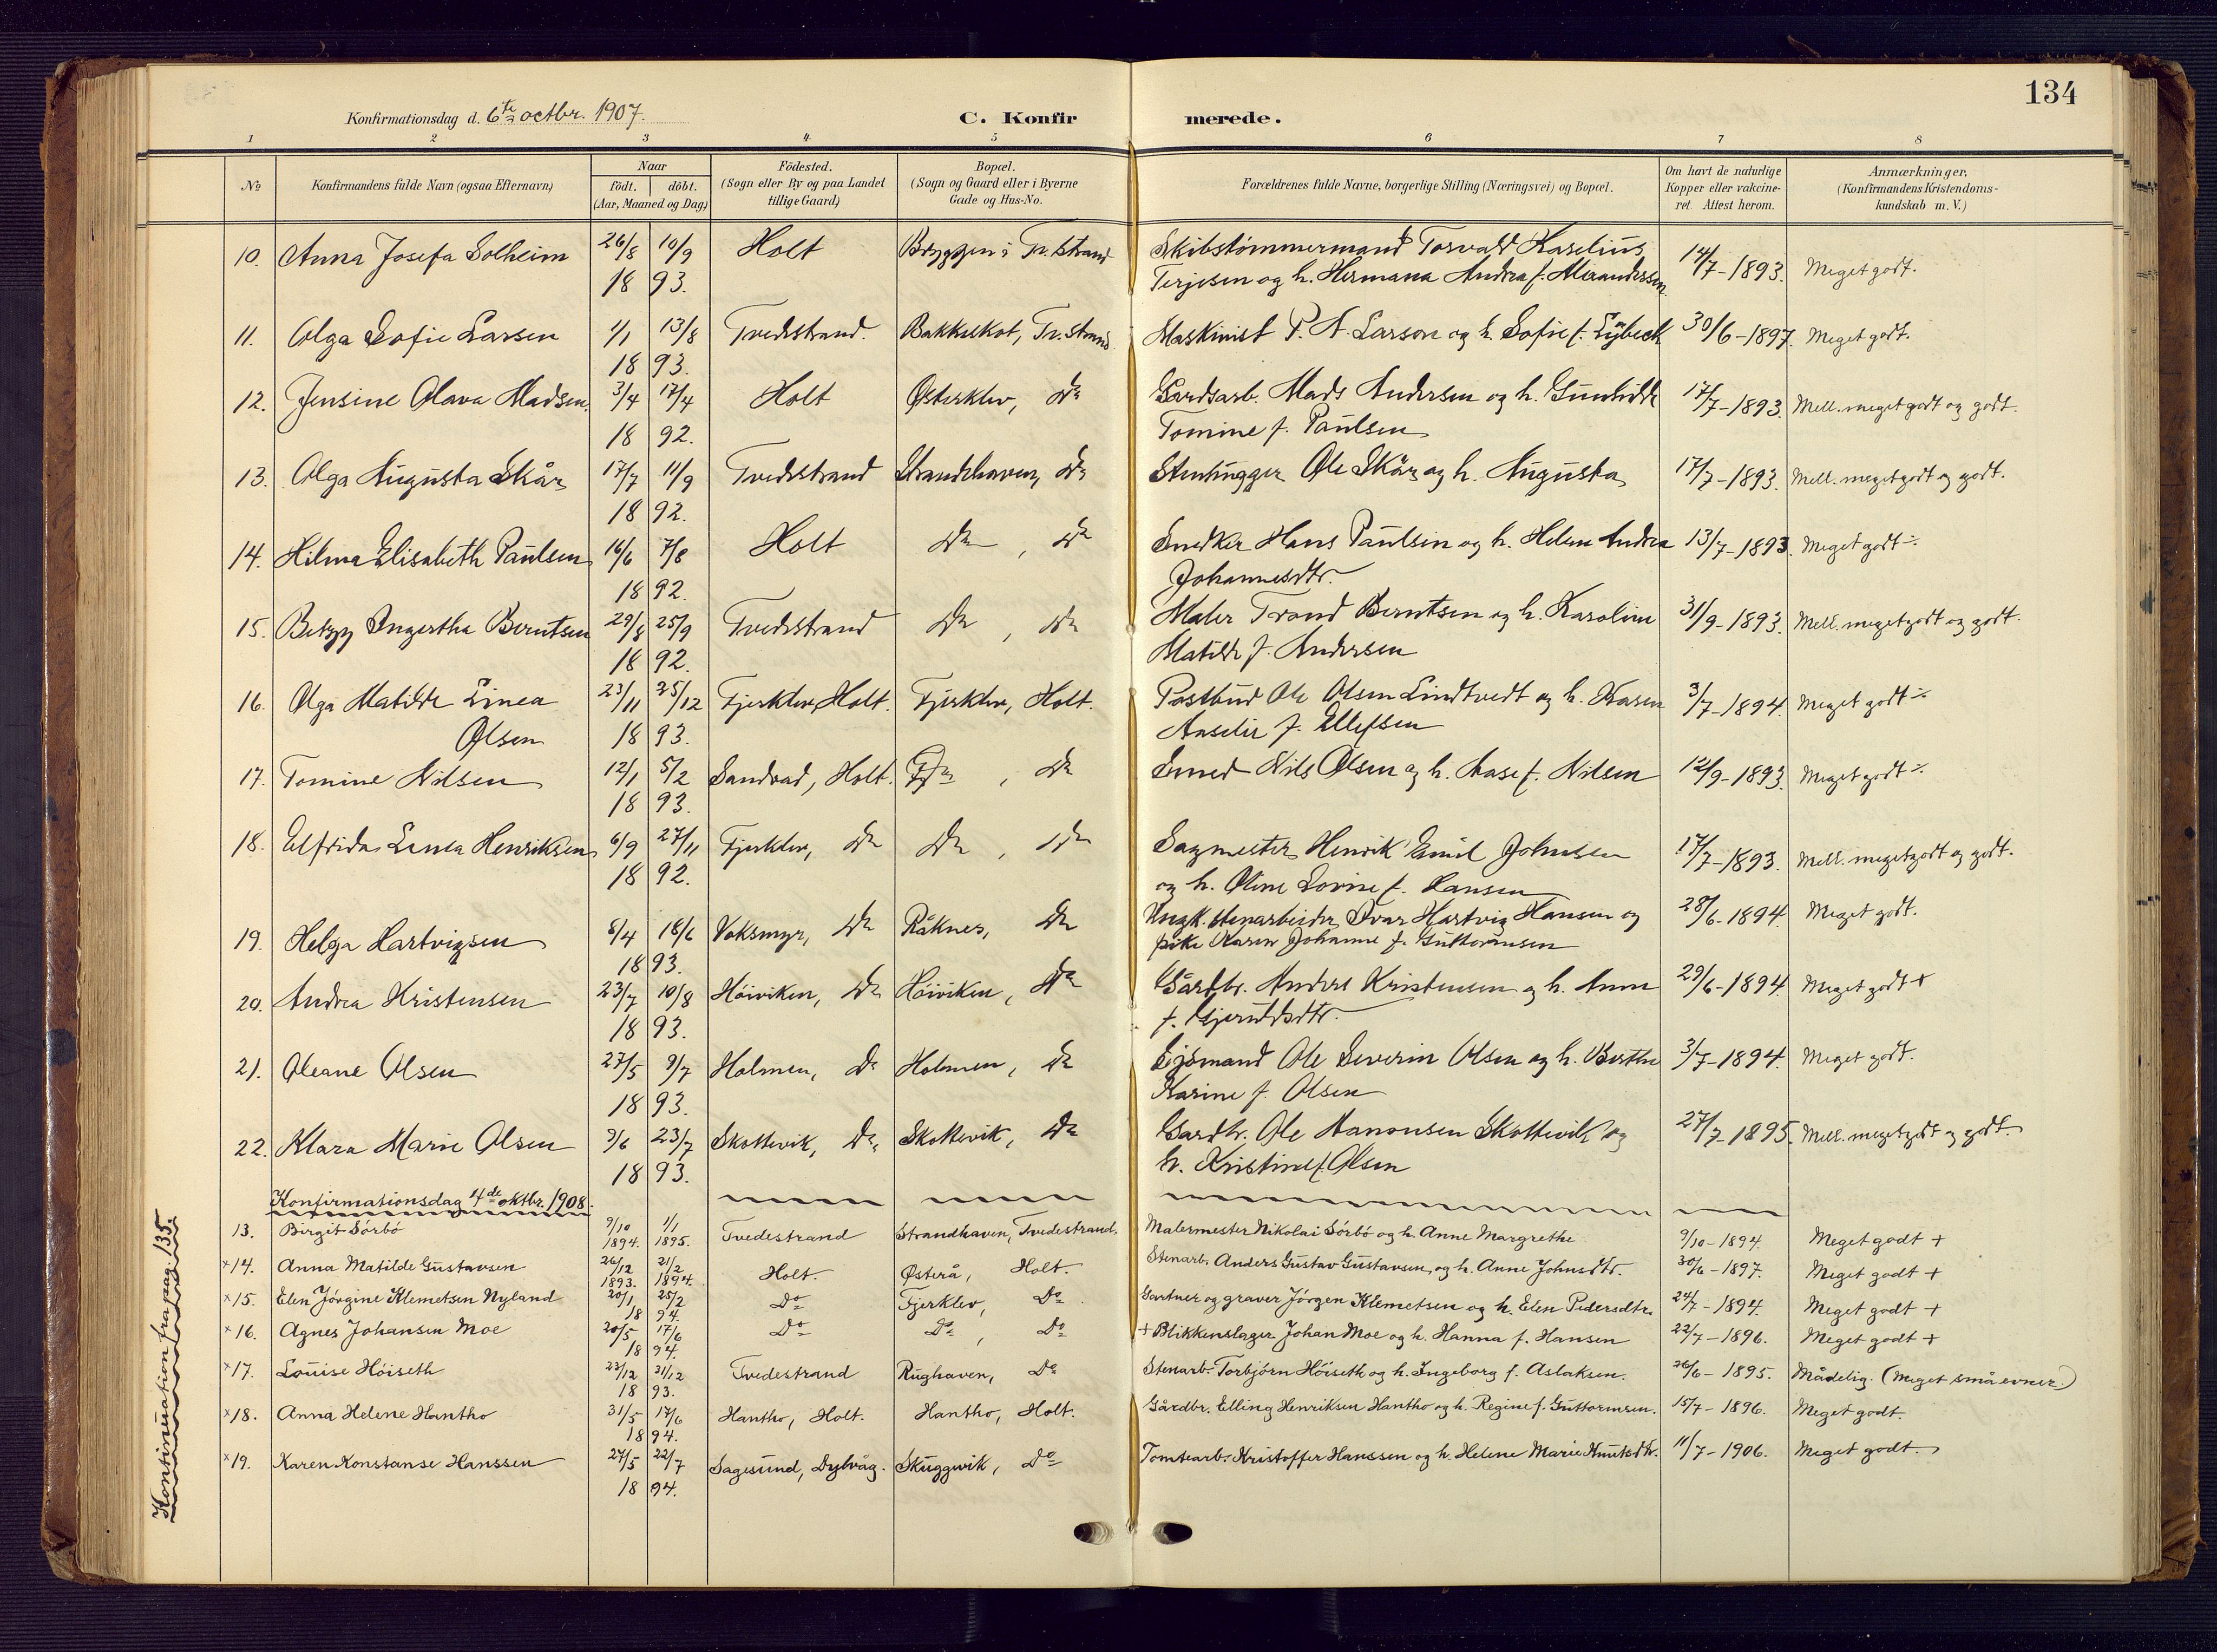 134
Konfirmationsdag d. 6te octbr. 1907.
C. Konfirmerede.
1 2 3 4 5 6 7 8
No
Konfirmandens fulde Navn (ogsaa Efternavn)
Naar
födt. döbt.
(Aar, Maaned og Dag)
Födested.
(Sogn eller By og paa Landet
tillige Gaard)
Bopæl.
(Sogn og Gaard eller i Byerne
Gade og Hus-No.
Forældrenes fulde Navne, borgerlige Stilling (Næringsvei) og Bopæl.
Om havt de naturlige
Kopper eller vakcine-
ret. Attest herom.
Anmærkninger,
(Konfirmandens Kristendoms-
kundskab m. V.)
10. Anna Josefa Solheim 26/8 10/9 Holt Bryggen i Tv.strand Skibstömmermand Torvald Karelius 14/7-1893. Meget godt.
18 93. Terjesen og h. Hermana Andrea f. Alexandersen
11. Olga Sofie Larsen 1/1 13/8 Tvedestrand. Bakkeskot, Tv.strand Maskinist P. A. Larson og h. Sofie f. Lybeck 30/6-1897. Meget godt.
18 93.
12. Jensine Olava Madsen. 3/4 17/4 Holt Østerklev, do Gardsarb. Mads Andersen og h. Gunhilde 17/7-1893. Mell. meget godt og godt.
18 92. Tomine f. Paulsen
13. Olga Augusta Skår 17/7 11/9 Tvedestrand Strandhaven, do Stenhugger Ole Skår og h. Augusta 17/7-1893. Mell. meget godt og godt.
18 92.
14. Hilma Elisabeth Paulsen 16/6 7/8 Holt do, do Snedker Hans Paulsen og h. Helene Andrea 13/7-1893. Meget godt ÷
18 92. Johannesdtr.
15. Betzy Ingertha Berntsen 29/8 25/9 Tvedestrand do, do Maler Trond Berntsen og h. Karoline 31/9-1893. Mell. meget godt og godt.
18 92. Matilde f. Andersen
16. Olga Matilde Linea 23/11 25/12 Fjerklev, Holt. Fjerklev, Holt. Postbud Ole Olsen Lindtvedt og h. Karen 3/7-1894. Meget godt ÷
Olsen 18 93. Anselie f. Ellefsen
17. Tomine Nilsen 12/1 5/2 Sandvad, Holt. do, do Smed Nils Olsen og h. Aase f. Nilsen 12/9-1893. Meget godt ÷
18 93.
18. Elfrida Linea Henriksen 6/9 27/11 Fjerklev, do do, do Sagmester Henrik Emil Johnsen 17/7-1893. Mell. meget godt og godt.
18 92. og h. Oline Lovise f. Hansen
19. Helga Hartvigsen 8/4 18/6 Voksmyr, do Råknes, do Ungk. stenarbeider Ivar Hartvig Hansen og 28/6-1894. Meget godt.
18 93. pike Karen Johanne f. Guttormsen
20. Andrea Kristensen 23/7 10/8 Höiviken, do Höiviken, do Gårdbr. Anders Kristensen og h. Anne 29/6-1894. Meget godt +
18 93. f. Gjeruldsdtr.
21. Oleane Olsen 27/5 9/7 Holmen, do Holmen, do Sjömand Ole Severin Olsen og h. Berthe 3/7-1894. Meget godt.
18 93. Karine f. Olsen
22. Klara Marie Olsen 9/6 23/7 Skottevik, do Skottevik, do Gardbr. Ole Aanonsen Skottevik og 27/7-1895. Mell. meget godt og godt.
18 93. h. Kristine f. Olsen
Konfirmationsdag 4de oktbr. 1908.
13. Birgit Sörbö 9/10 1894. 1/1 1895. Tvedestrand Strandhaven, Tvedestrand. Malermester Nikolai Sörbö og h. Anne Margrethe 9/10-1894. Meget godt +
×14. Anna Matilde Gustavsen 26/12 1893. 21/2 1894. Holt. Østerå, Holt. Stenarb. Anders Gustav Gustavsen og h. Anne Johnsdtr. 30/6-1897. Meget godt +
×15. Elen Jörgine Klemetsen Nyland 20/1 25/2 18 94. Do Fjerklev, Do Gartner og graver Jörgen Klemetsen og h. Elen Pedersdtr. 24/7-1894. Meget godt +
×16. Agnes Johansen Moe 20/5 17/6 18 94. Do Do, Do + Blikkenslager Johan Moe og h. Hanna f. Hansen 22/7-1896. Meget godt +
×17. Louise Höiseth 23/12 31/12 18 93. Tvedestrand Rughaven, Do Stenarb. Torbjörn Höiseth og h. Ingeborg f. Aslaksen. 26/6-1895. Mådelig. (Meget små evner.)
×18. Anna Helene Hantho 31/5 17/6 18 94. Hantho, Holt. Hantho, Holt. Gårdbr. Elling Henriksen Hantho og h. Regine f. Guttormsen. 15/7-1896. Meget godt.
×19. Karen Konstanse Hanssen 27/5 22/7 18 94. Sagesund, Dybvåg. Skuggevik, Do Tomtearb. Kristoffer Hanssen og h. Helene Marie Knutsdtr. 11/7-1906. Meget godt.
Kontinuation fra pag. 135.